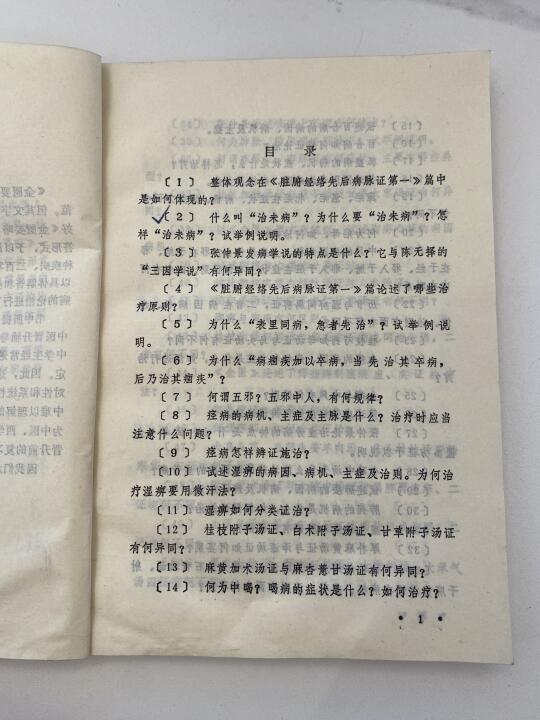 目录
〔1〕 整体观念在《脏腑经络先后病脉证第一》篇中
是如何体现的?
〔2〕 什么叫“治未病”?为什么要“治未病”?怎
样“治未病”?试举例说明。
〔3〕 张仲景发病学说的特点是什么?它与陈无择的
“三因学说”有何异同?
〔4〕 《脏腑经络先后病脉证第一》篇论述了哪些治
疗原则?
〔5〕 为什么“表里同病,急者先治”?试举例说
明。
〔6〕 为什么“病痼疾加以卒病,当先治其卒病,
后乃治其痼疾”?
〔7〕 何谓五邪?五邪中人,有何规律?
〔8〕 痉病的病机、主症及主脉是什么?治疗时应当
注意什么问题?
〔9〕 痉病怎样辨证施治?
〔10〕 试述湿痹的病因、病机、主症及治则。为何治
疗湿痹要用微汗法?
〔11〕 湿痹如何分类证治?
〔12〕 桂枝附子汤证、白术附子汤证、甘草附子汤证
有何异同?
〔13〕 麻黄加术汤证与麻杏薏甘汤证有何异同?
〔14〕 何为中暍?暍病的症状是什么?如何治疗?
• 1 •